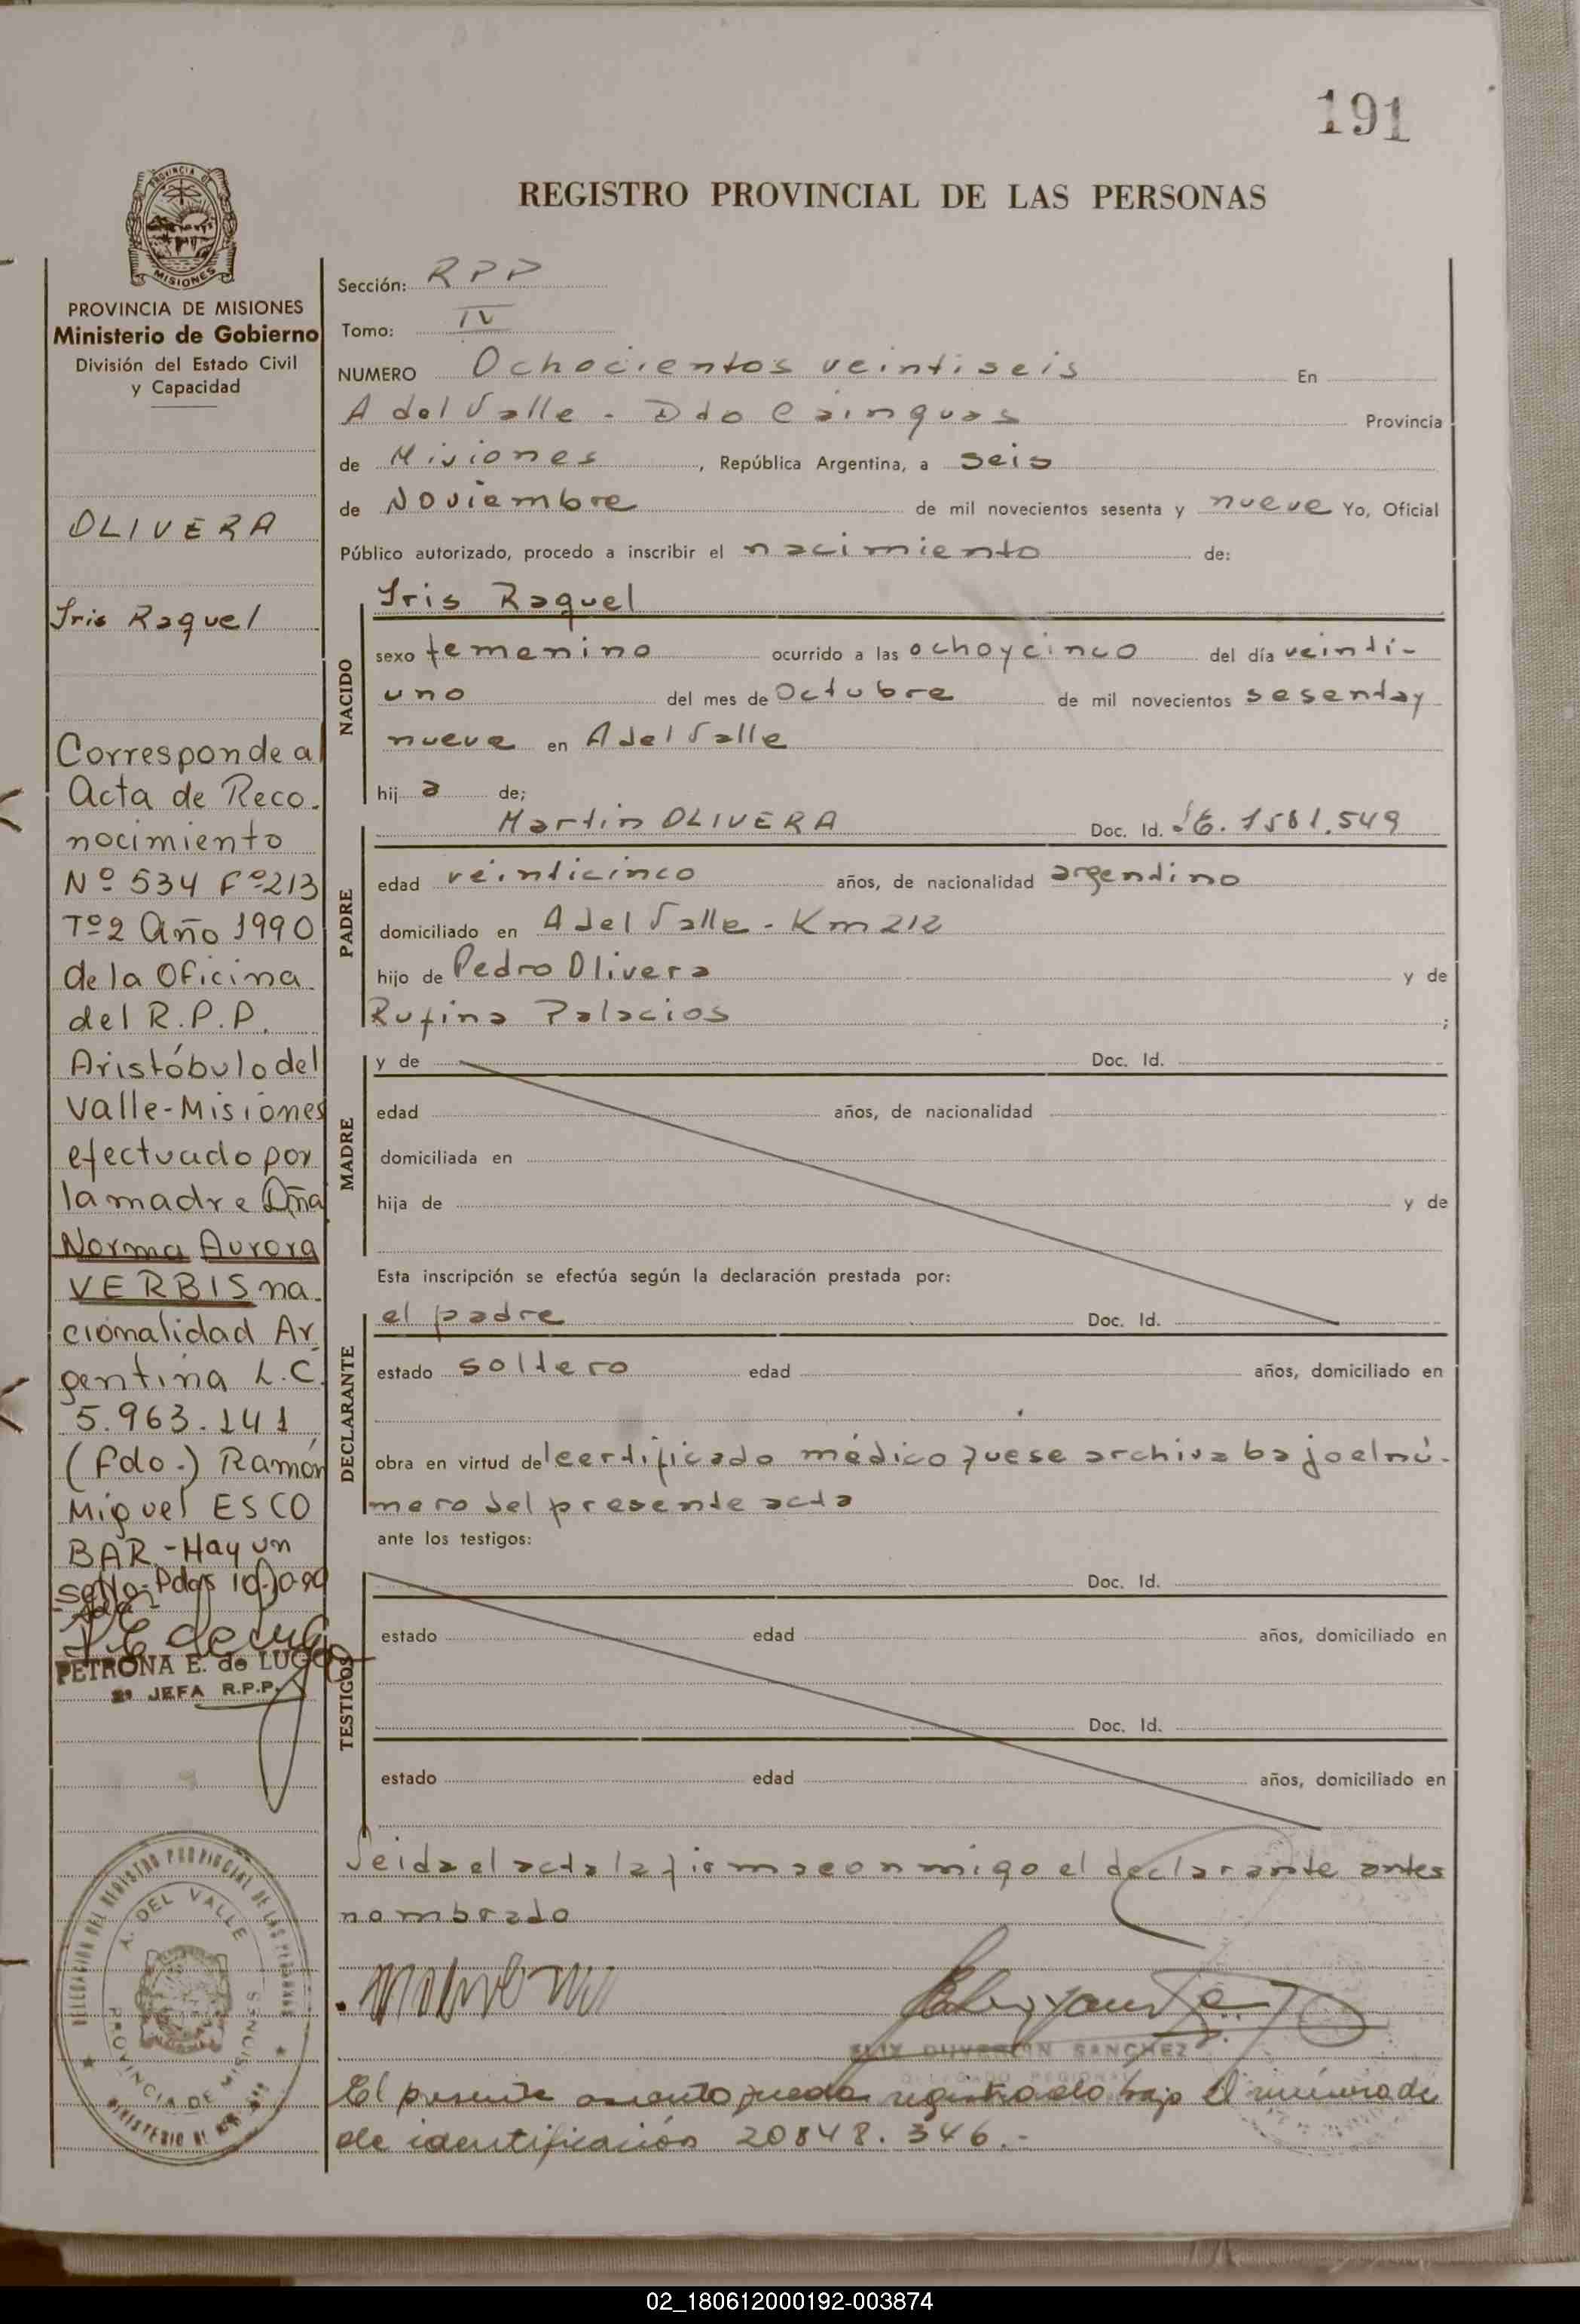 191
REGISTRO PROVINCIAL DE LAS PERSONAS
PROVINCIA DE MISIONES
Ministerio de Gobierno
División del Estado Civil
y Capacidad
OLIVERA
Iris Raquel
Corresponde al
Acta de Reco-
nocimiento
Nº 534 Fº 213
Tº 2 Año 1990
de la Oficina
del R.P.P.
Aristóbulo del
Valle-Misiones
efectuado por
la madre Dña
Norma Aurora
VERBIS na-
cionalidad Ar
gentina L.C.
5.963.141
(Fdo.) Ramón
Miguel ESCO
BAR.-Hay un
sello-Pdas
PETRONA E. de LUGO
2ª JEFA R.P.P.
DELEGACION DEL REGISTRO PROVINCIAL DE LAS PERSONAS
A. DEL VALLE
PROVINCIA DE MISIONES
Sección: RPP
Tomo: IV
NUMERO Ochocientos veintiseis En
A del Valle - Dto Cainguas Provincia
de Misiones, República Argentina, a seis
de Noviembre de mil novecientos sesenta y nueve Yo, Oficial
Público autorizado, procedo a inscribir el nacimiento de:
NACIDO
Iris Raquel
sexo femenino ocurrido a las ocho y cinco del día veinti-
uno del mes de Octubre de mil novecientos sesenta y
nueve en A del Valle
hija de;
PADRE
Martin OLIVERA Doc. Id. 1581.549
edad veinticinco años, de nacionalidad argentino
domiciliado en A del Valle - Km 212
hijo de Pedro Olivera y de
Rufina Palacios ;
MADRE
y de Doc. Id.
edad años, de nacionalidad
domiciliada en
hija de y de
Esta inscripción se efectúa según la declaración prestada por:
DECLARANTE
el padre Doc. Id.
estado soltero edad años, domiciliado en
obra en virtud del certificado médico que se archiva bajo el nú-
mero del presente acta
ante los testigos:
TESTIGOS
Doc. Id.
estado edad años, domiciliado en
Doc. Id.
estado edad años, domiciliado en
Leida el acta la firma conmigo el declarante antes
nombrado
SANCHEZ
El presente asiento queda registrado bajo el número de
de identificación 20848.346.-
02_180612000192-003874